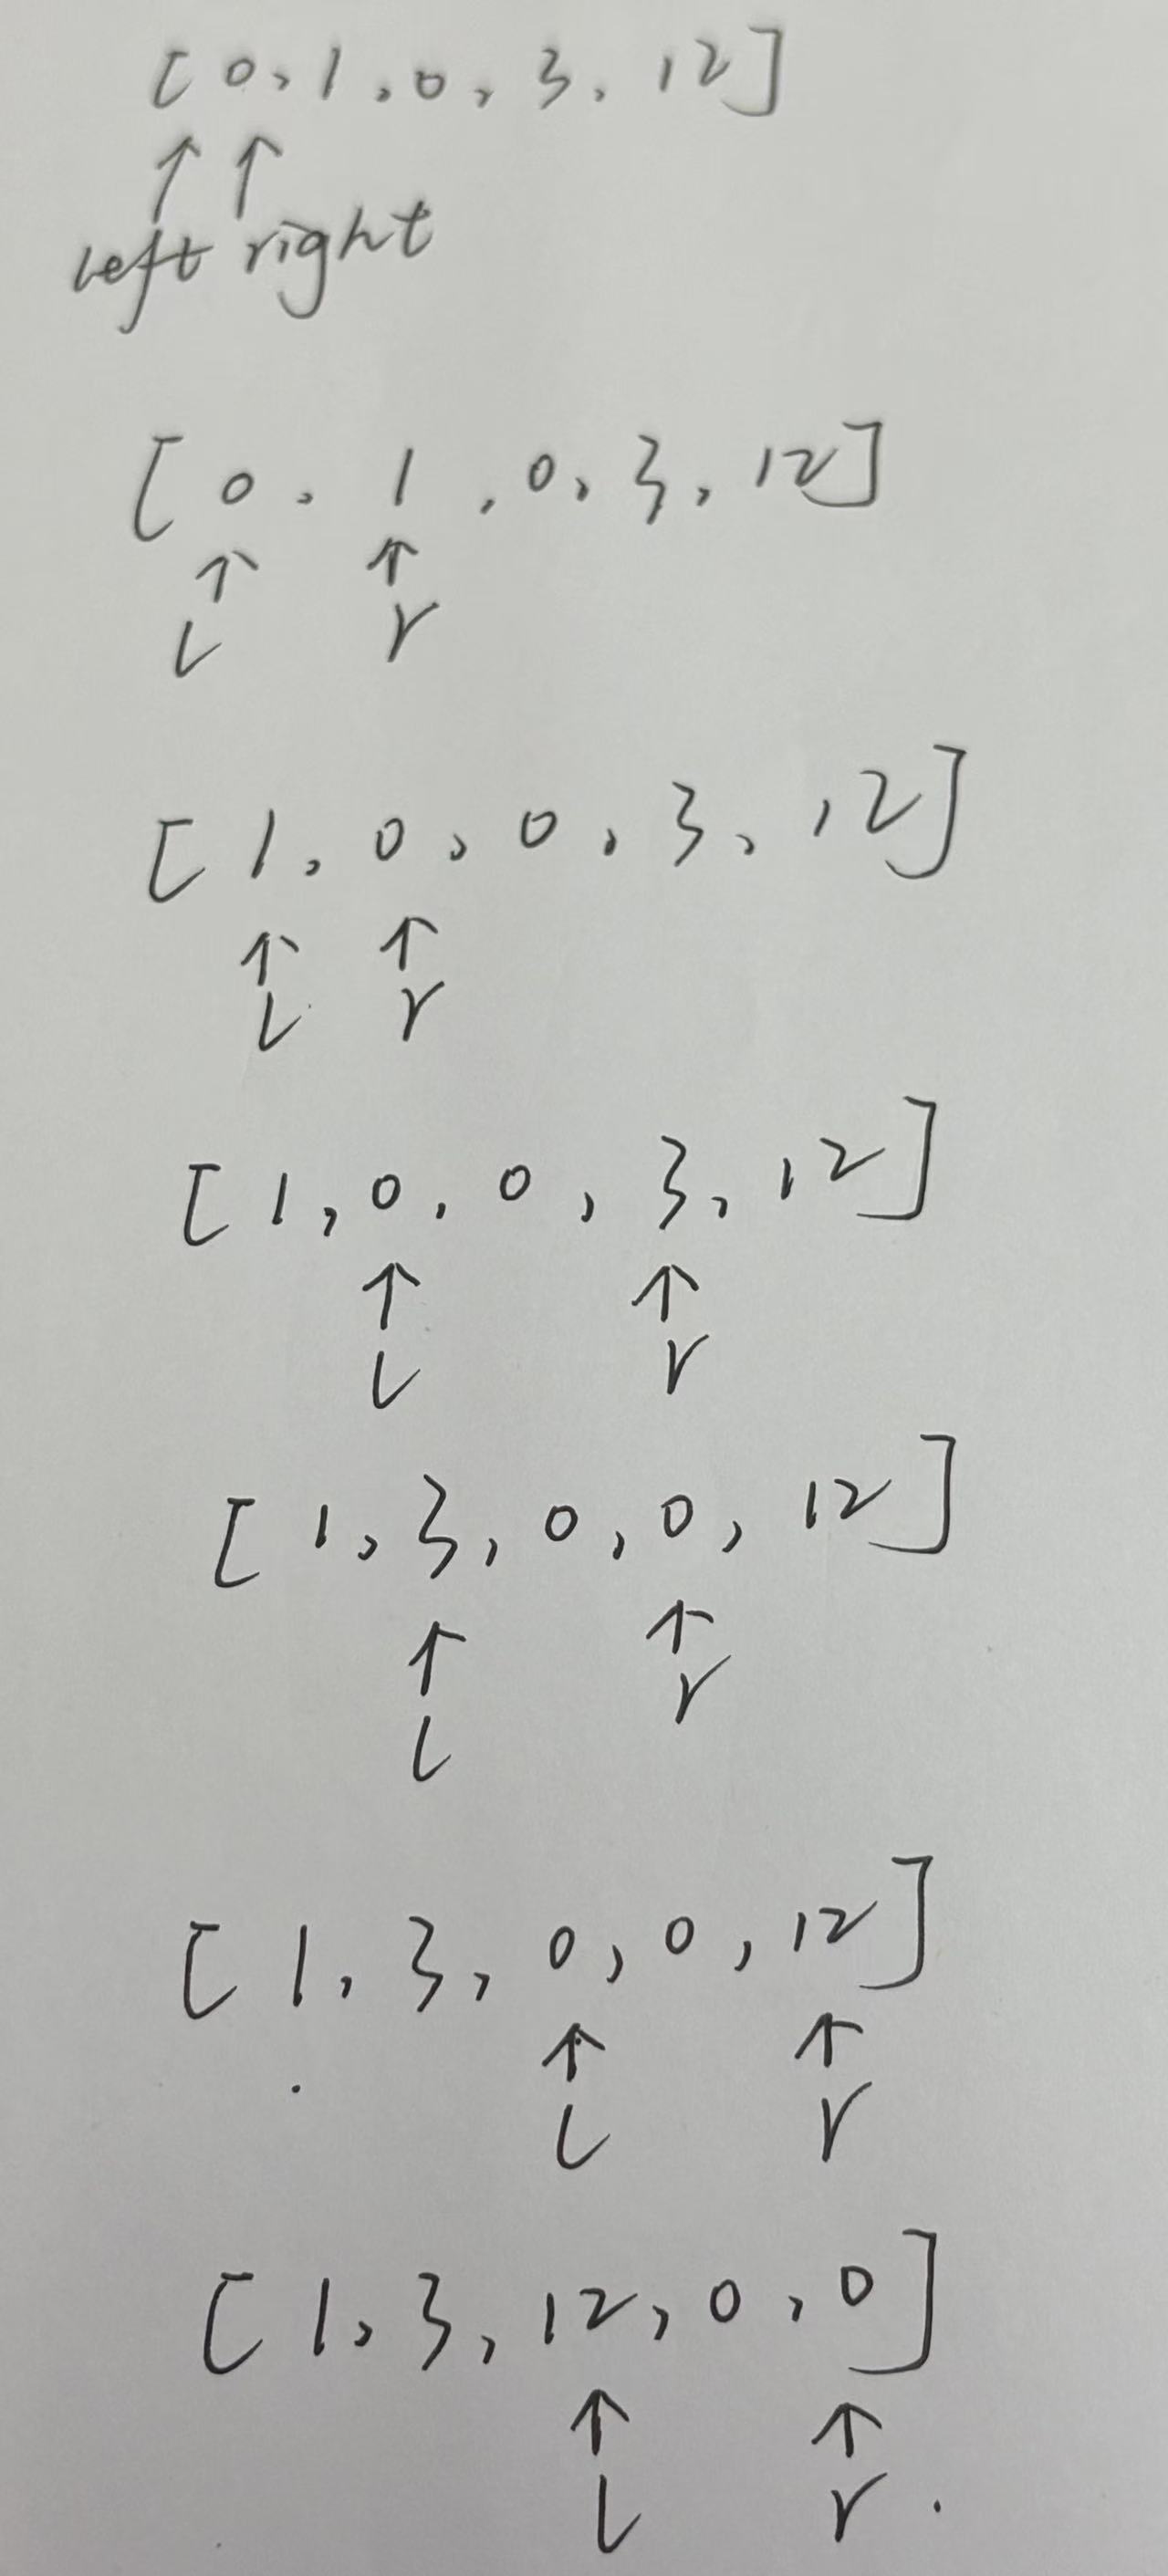 [0,1,0,3,12]
↑ ↑
left right
[0,1,0,3,12]
↑ ↑
L r
[1,0,0,3,12]
↑ ↑
L r
[1,0,0,3,12]
↑ ↑
L r
[1,3,0,0,12]
↑ ↑
L r
[1,3,0,0,12]
↑ ↑
L r
[1,3,12,0,0]
↑ ↑
L r.